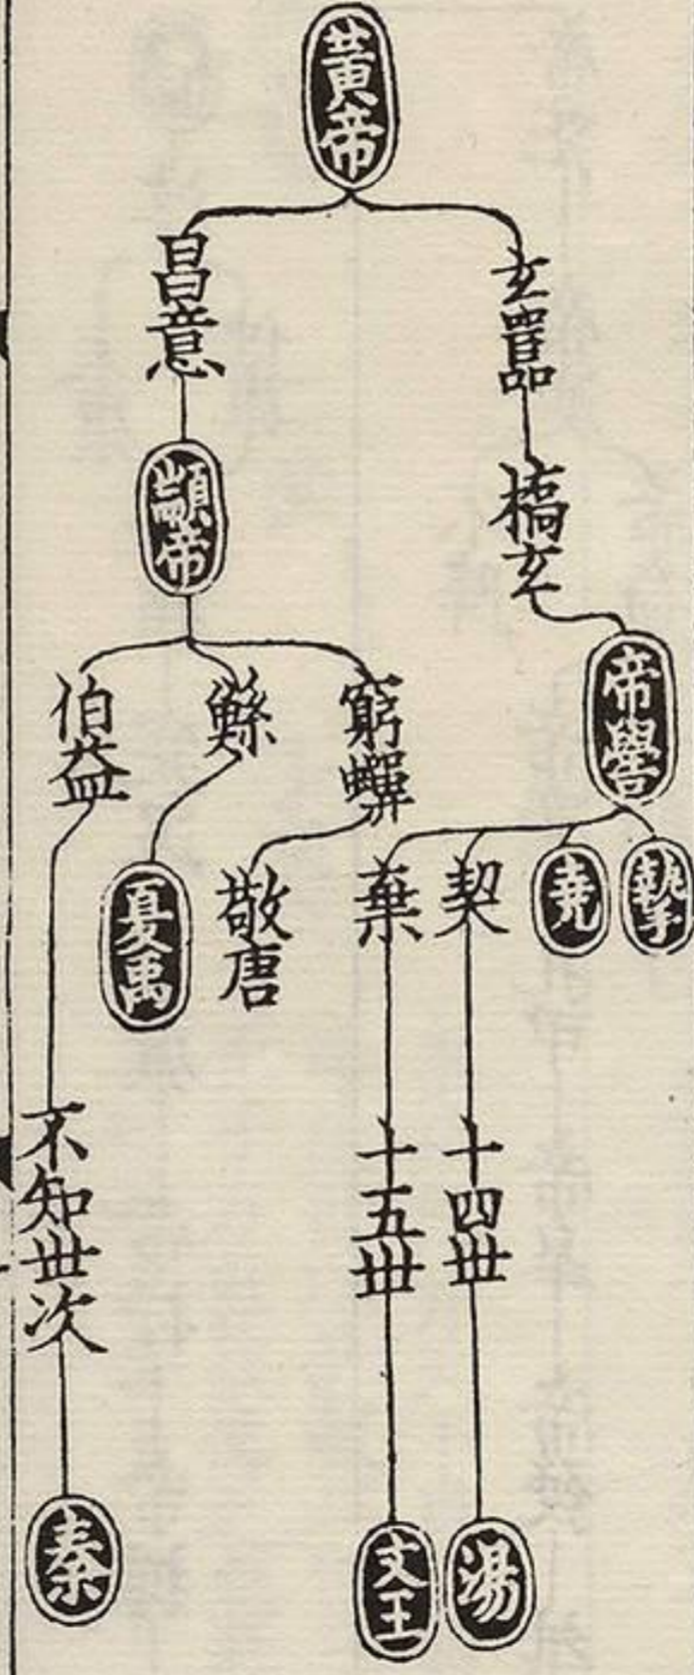 黄帝
玄囂
橋玄
帝嚳
摯
堯
契
十四世
湯
棄
十五世
文王
昌意
顓帝
窮蟬
敬唐
鯀
夏禹
伯益
不知世次
秦